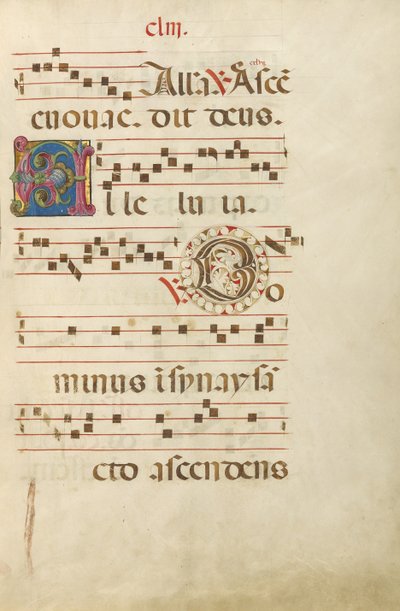 cliij.
Alla. V. Ascē
euouae. dit deus.
Alle lu ia.
V. Do
minus ī synay sā
cto ascendens